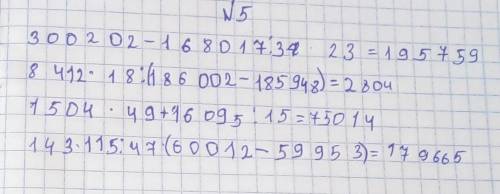 №5
300202-168017:37·23=195759
8412·18:(186002-185948)=2804
1504·49+16095:15=75014
143·115:47·(60012-59953)=179665